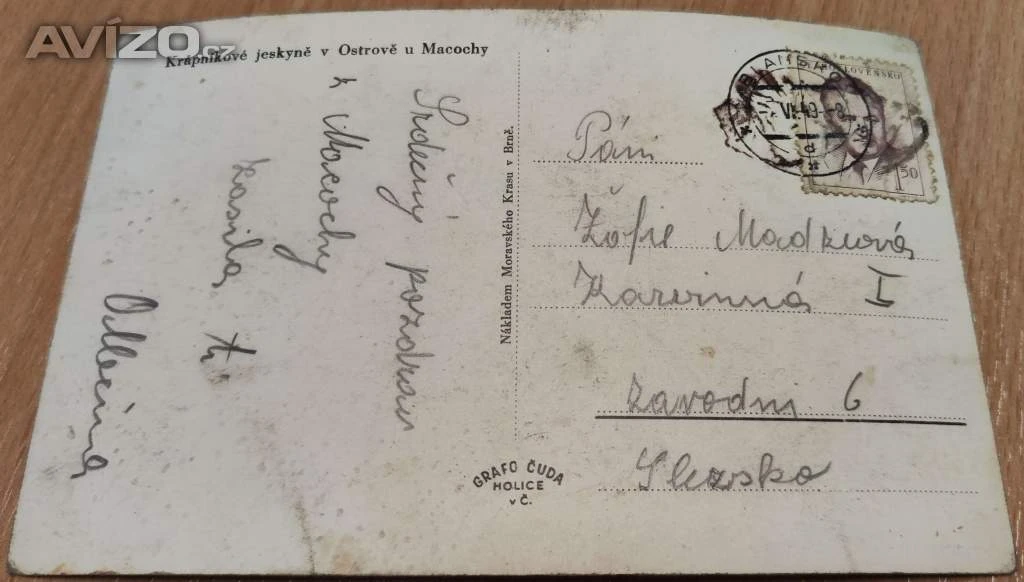 AVÍZO.cz
Krápníkové jeskyně v Ostrově u Macochy
Srdečný pozdrav
z Macochy
zasílá
Nákladem Moravského Krasu v Brně.
GRAFO ČUDA
HOLICE
v Č.
BLANSKO
SLOVENSKO
1 50
Pání
Žofie
Karvinná I
Závodní 6
Slezsko